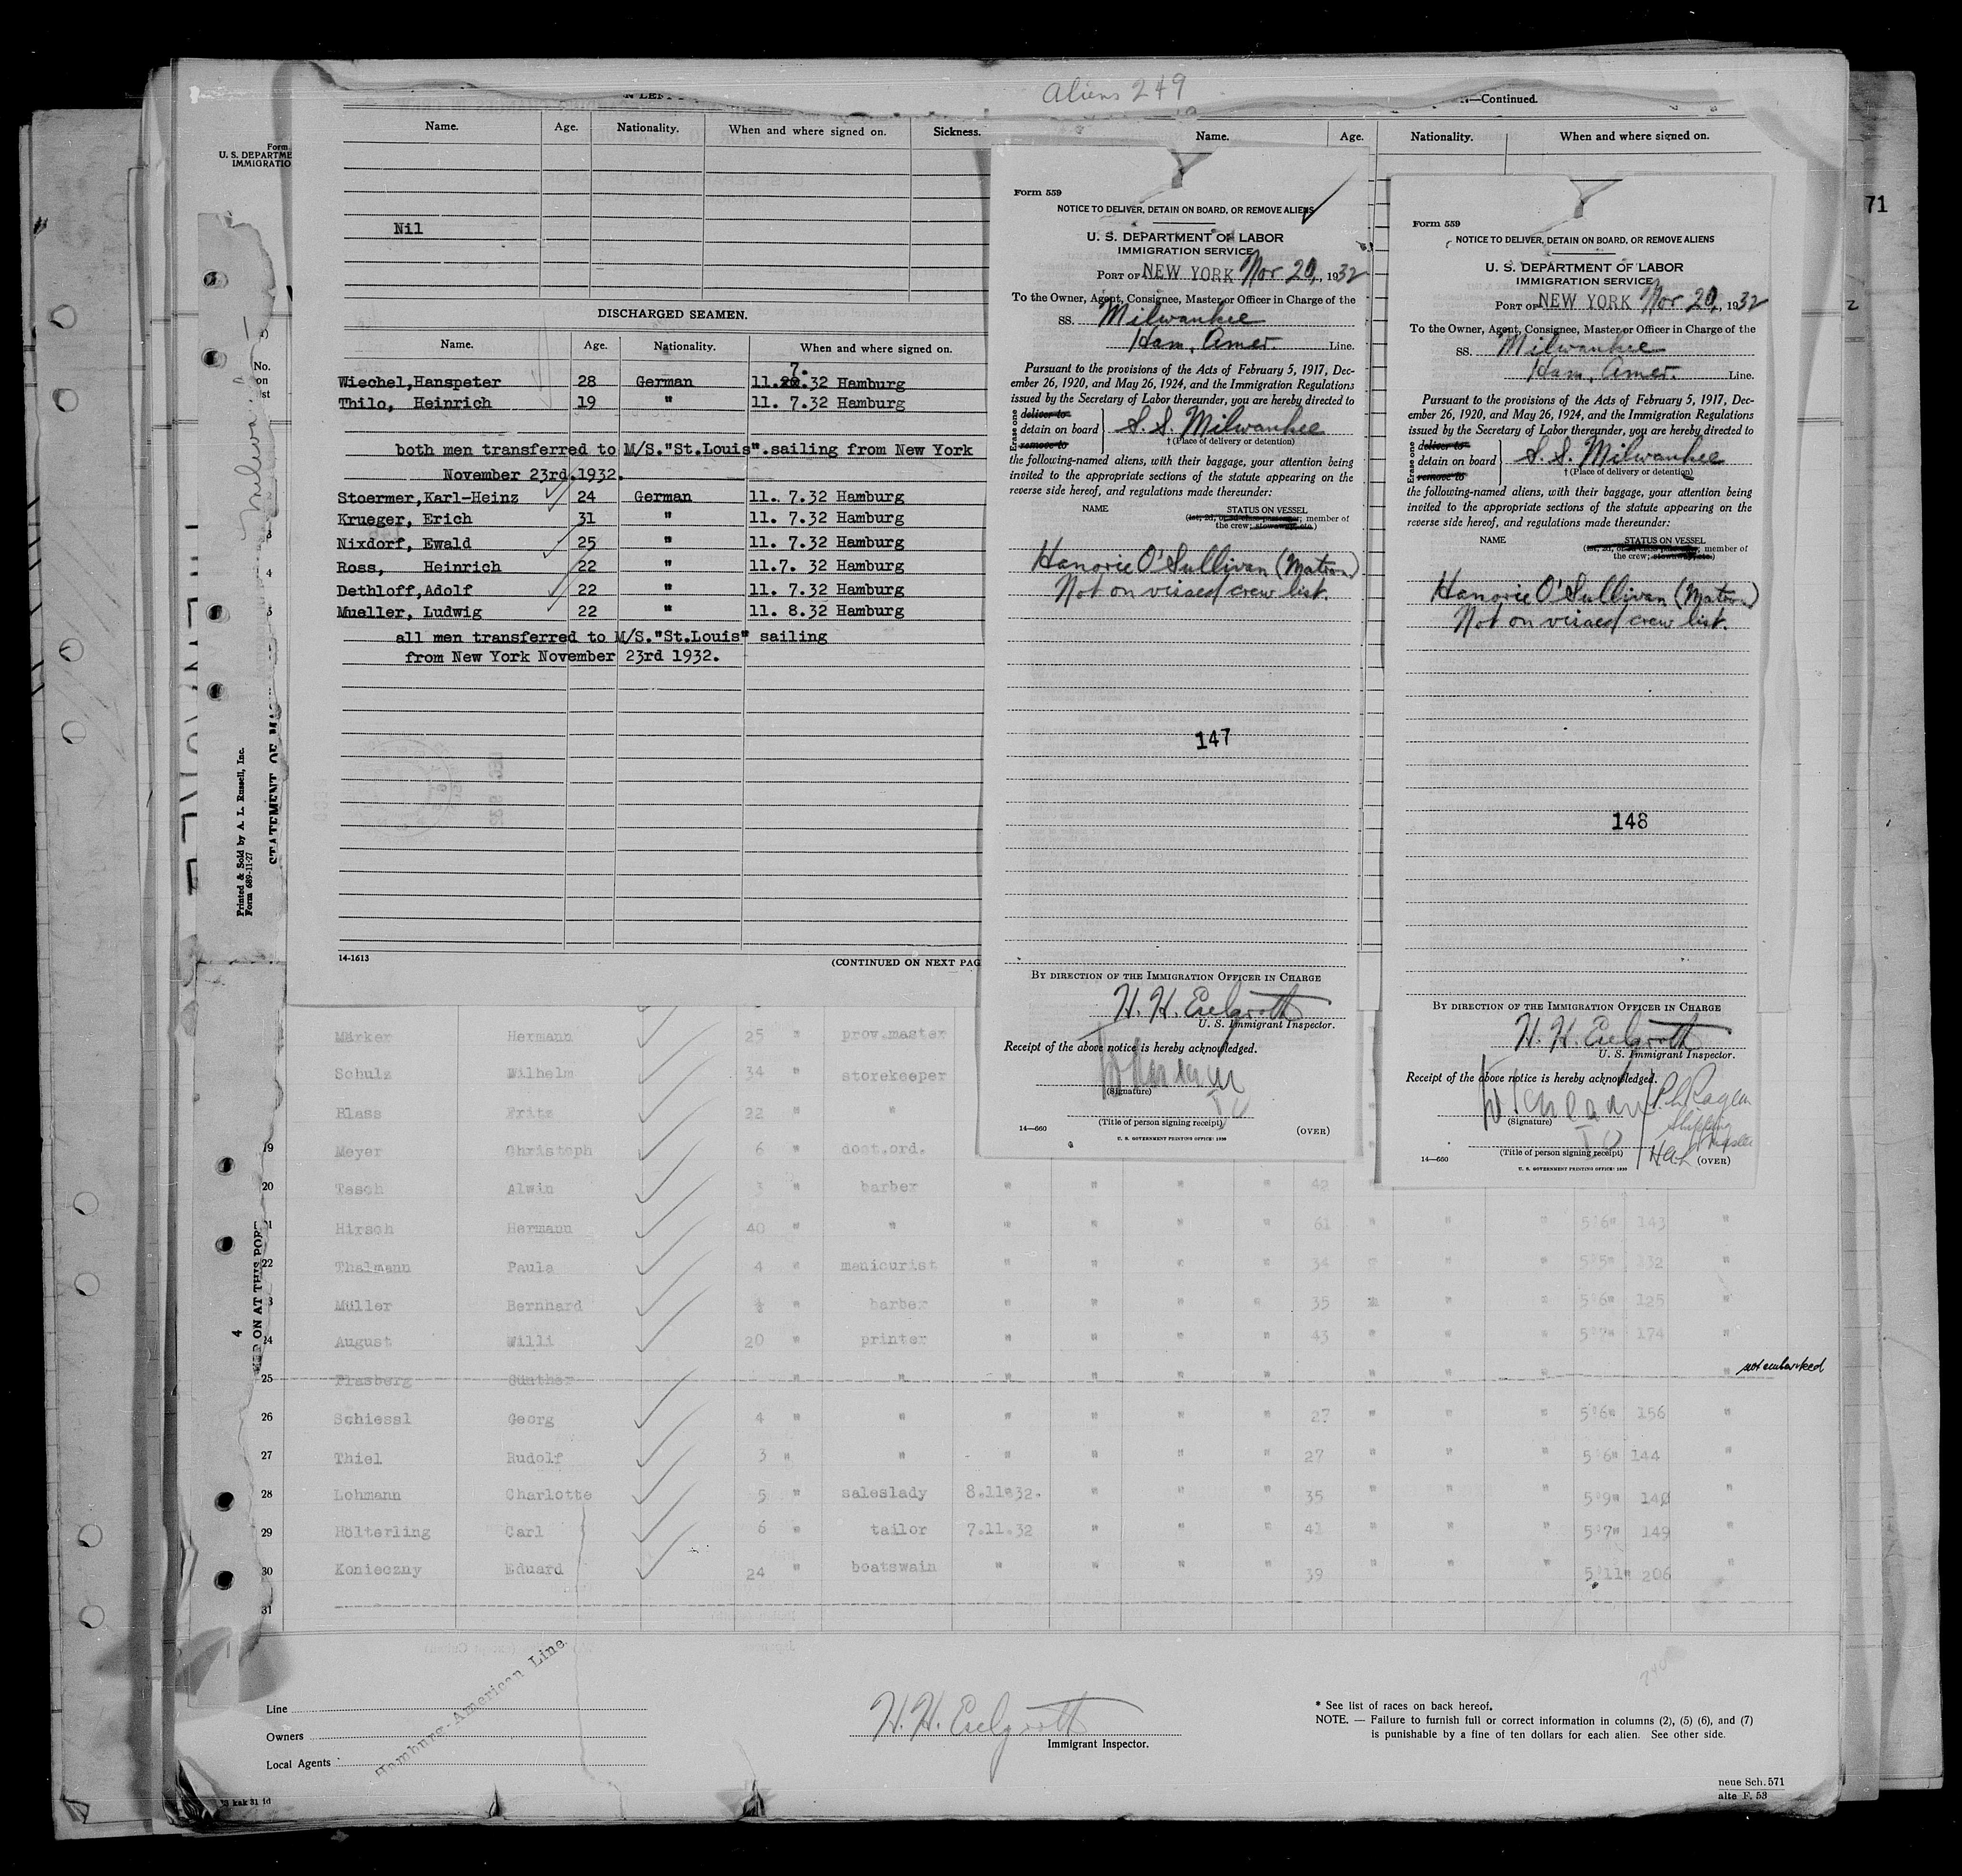 Aliens 249
—Continued.
Name. Age. Nationality. When and where signed on. Sickness.
Nil
DISCHARGED SEAMEN.
Name. Age. Nationality. When and where signed on.
7.
Wiechel,Hanspeter 28 German 11.22.32 Hamburg
Thilo, Heinrich 19 " 11. 7.32 Hamburg
both men transferred to M/S."St.Louis".sailing from New York
November 23rd.1932.
Stoermer,Karl-Heinz 24 German 11. 7.32 Hamburg
Krueger, Erich 31 " 11. 7.32 Hamburg
Nixdorf, Ewald 25 " 11. 7.32 Hamburg
Ross, Heinrich 22 " 11.7. 32 Hamburg
Dethloff,Adolf 22 " 11. 7.32 Hamburg
Mueller, Ludwig 22 " 11. 8.32 Hamburg
all men transferred to M/S."St.Louis" sailing
from New York November 23rd 1932.
14-1613
(CONTINUED ON NEXT PAG
Name. Age. Nationality. When and where signed on.
Form 559
NOTICE TO DELIVER, DETAIN ON BOARD, OR REMOVE ALIENS
U. S. DEPARTMENT OF LABOR
IMMIGRATION SERVICE
PORT OF NEW YORK Nov 20, 1932
To the Owner, Agent, Consignee, Master or Officer in Charge of the
SS. Milwaukee
Ham, Amer. Line.
Pursuant to the provisions of the Acts of February 5, 1917, Dec-
ember 26, 1920, and May 26, 1924, and the Immigration Regulations
issued by the Secretary of Labor thereunder, you are hereby directed to
Erase one
deliver to
detain on board S. S. Milwaukee
remove to
† (Place of delivery or detention)
the following-named aliens, with their baggage, your attention being
invited to the appropriate sections of the statute appearing on the
reverse side hereof, and regulations made thereunder:
NAME STATUS ON VESSEL
(1st, 2d, or 3d class passenger; member of
the crew; stowaway, etc.)
Hanorie O'Sullivan (Matron)
Not on visaed crew list.
147
BY DIRECTION OF THE IMMIGRATION OFFICER IN CHARGE
H. H. Eselgroth
U. S. Immigrant Inspector.
Receipt of the above notice is hereby acknowledged.
(Signature)
(Title of person signing receipt)
14—660
U. S. GOVERNMENT PRINTING OFFICE: 1930
(OVER)
Form 559
NOTICE TO DELIVER, DETAIN ON BOARD, OR REMOVE ALIENS
U. S. DEPARTMENT OF LABOR
IMMIGRATION SERVICE
PORT OF NEW YORK Nov 20, 1932
To the Owner, Agent, Consignee, Master or Officer in Charge of the
SS. Milwaukee
Ham, Amer. Line.
Pursuant to the provisions of the Acts of February 5, 1917, Dec-
ember 26, 1920, and May 26, 1924, and the Immigration Regulations
issued by the Secretary of Labor thereunder, you are hereby directed to
Erase one
deliver to
detain on board S. S. Milwaukee
remove to
† (Place of delivery or detention)
the following-named aliens, with their baggage, your attention being
invited to the appropriate sections of the statute appearing on the
reverse side hereof, and regulations made thereunder:
NAME STATUS ON VESSEL
(1st, 2d, or 3d class passenger; member of
the crew; stowaway, etc.)
Hanorie O'Sullivan (Matron)
Not on visaed crew list.
148
BY DIRECTION OF THE IMMIGRATION OFFICER IN CHARGE
H. H. Eselgroth
U. S. Immigrant Inspector.
Receipt of the above notice is hereby acknowledged.
(Signature)
Shipping
(Title of person signing receipt)
14—660
U. S. GOVERNMENT PRINTING OFFICE: 1930
(OVER)
71
2
Form
U. S. DEPARTME
IMMIGRATIO
No.
Printed & Sold by A. L. Russell, Inc.
Form 689-11-27
STATEMENT OF
ON AT THIS PORT
4
Märker Hermann 25 " prov.master
Schulz Wilhelm 34 " storekeeper
Blass Fritz 22 " "
19 Meyer Christoph 6 " doct.ord.
20 Tesch Alwin 3 " barber " " " " 42 "
21 Hirsch Hermann 40 " " " " " " 61 " " " 5'6" 143 "
22 Thalmann Paula 4 " manicurist " " " " 34 " " " 5'5" 132 "
23 Müller Bernhard ½ " barber " " " " 35 " " " 5'6" 125 "
24 August Willi 20 " printer " " " " 43 " " " 5'7" 174 "
25 Flasberg Günther " " " " " " " " " " not embarked
26 Schiessl Georg 4 " " " " " " 27 " " " 5'6" 156 "
27 Thiel Rudolf 3 " " " " " " 27 " " " 5'6" 144 "
28 Lehmann Charlotte 5 " saleslady 8.11.32. " " " 35 " " " 5'9" 140 "
29 Hölterling Carl 6 " tailor 7.11.32 " " " 41 " " " 5'7" 149 "
30 Konieczny Eduard 24 " boatswain " " " " 39 " " " 5'11" 206 "
31
Line
Owners
Local Agents
Hamburg-American Line.
H. H. Eselgroth
Immigrant Inspector.
* See list of races on back hereof.
NOTE. — Failure to furnish full or correct information in columns (2), (5) (6), and (7)
is punishable by a fine of ten dollars for each alien. See other side.
neue Sch. 571
alte F. 53